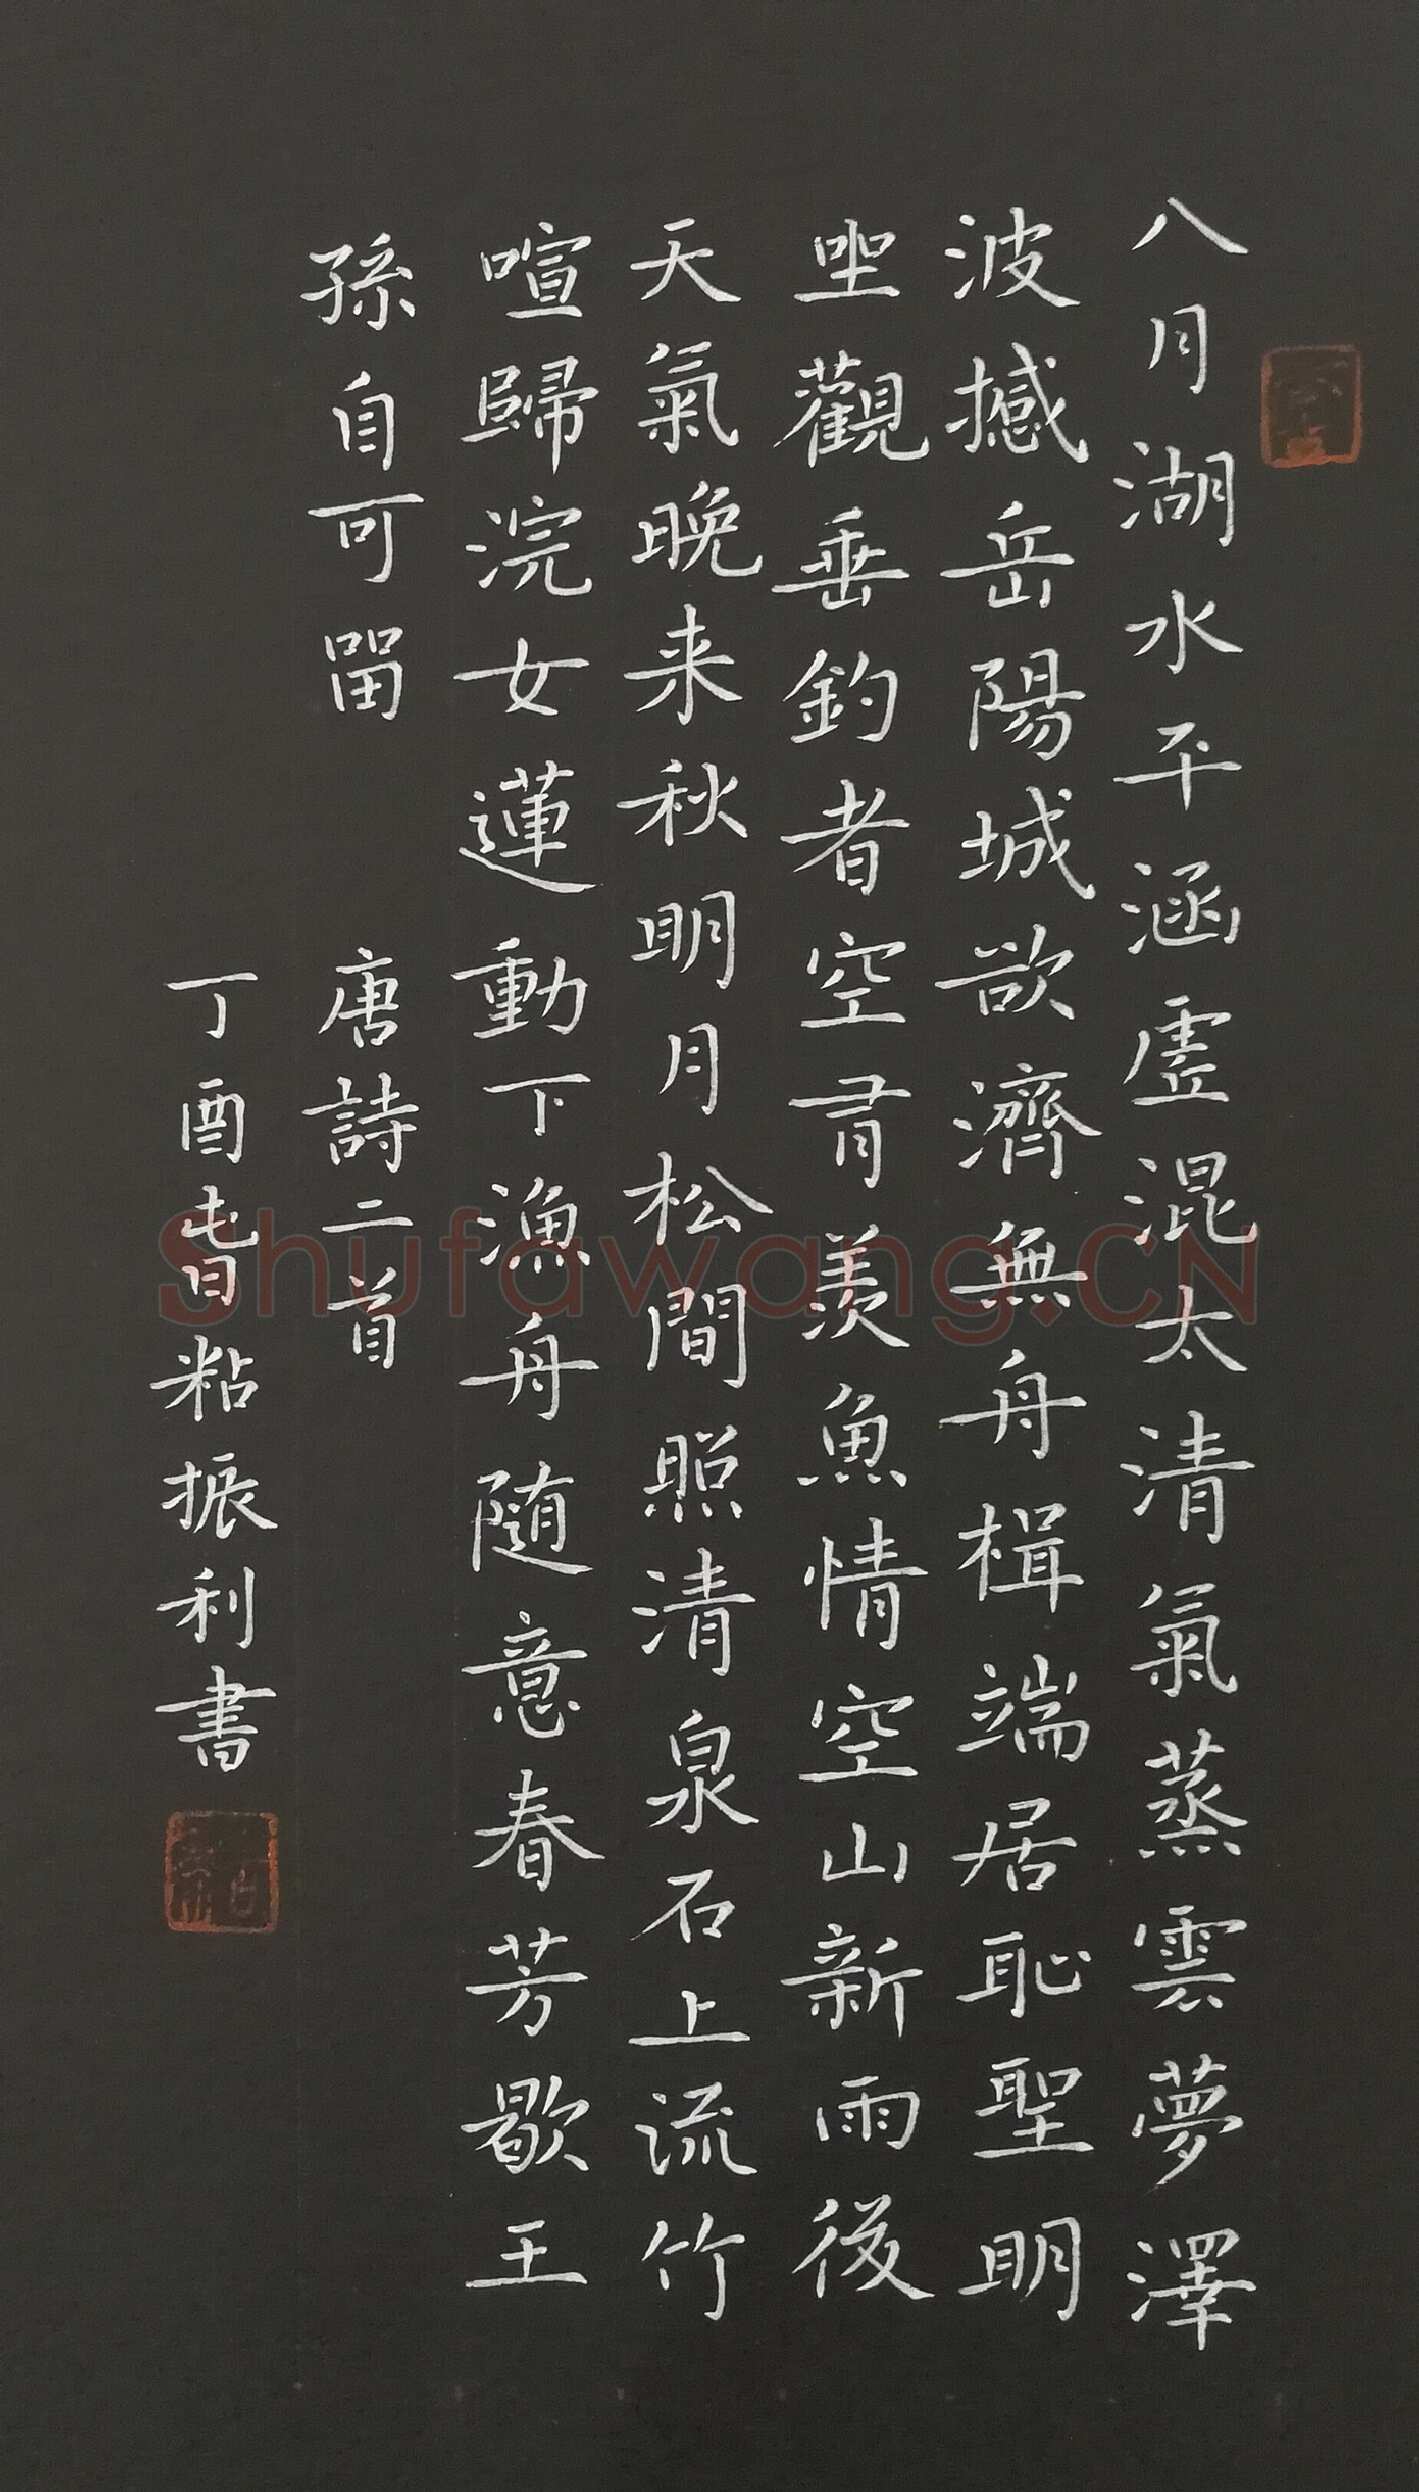 八月湖水平涵虛混太清氣蒸雲夢澤
波撼岳陽城欲濟無舟楫端居恥聖明
坐觀垂釣者空有羨魚情空山新雨後
天氣晚来秋明月松間照清泉石上流竹
喧歸浣女蓮動下漁舟随意春芳歇王
孫自可畱 唐詩二首
丁酉旾粘振利書
Shufawang.CN